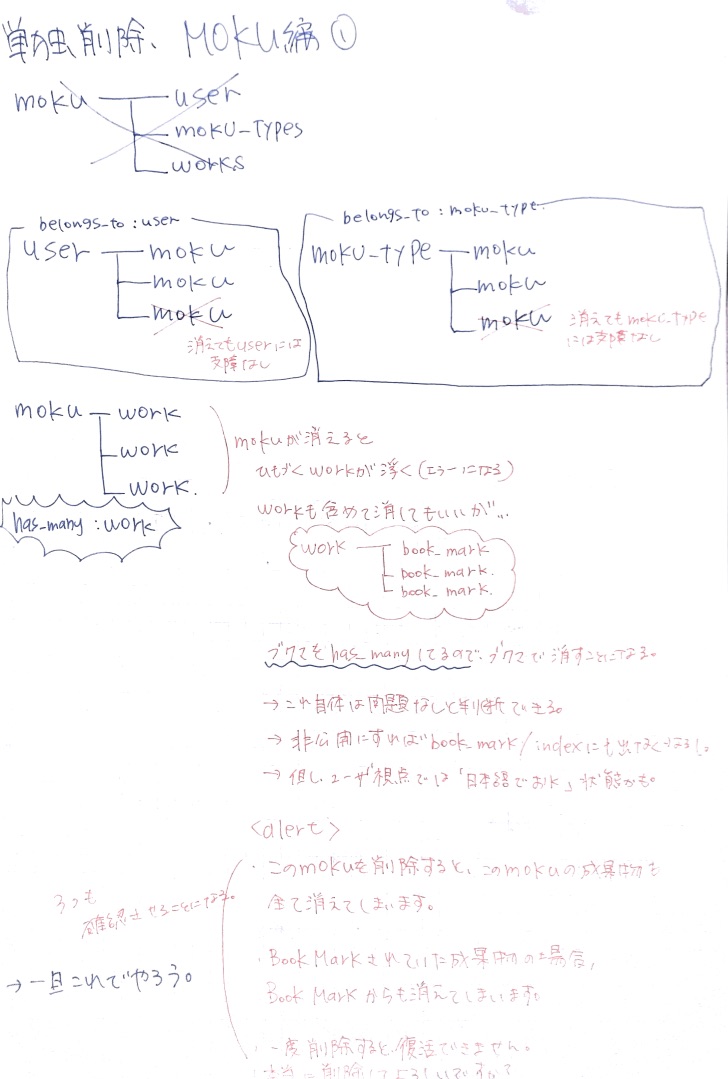 単独削除、MOKU編①
moku user
moku-types
works
belongs_to : user
user moku
moku
moku
消えてもuserには
支障なし
belongs_to : moku_type
moku-type moku
moku
moku
消えてもmoku-type
には支障なし
moku work
work
work.
has_many : work
mokuが消えると
ひもづくworkが浮く(エラーになる)
workも含めて消してもいいが…
work book_mark
book_mark.
book_mark.
ブクマもhas_manyしてるので、ブクマで消すことになる。
→これ自体は問題なしと判断できる。
→非公開にすればbook_mark/indexにも出なくなるし。
→但し、ユーザ視点では「日本語でおk」状態かも。
<alert>
・このmokuを削除すると、このmokuの成果物も
全て消えてしまいます。
・BookMarkされていた成果物の場合、
BookMarkからも消えてしまいます。
・一度削除すると、復活できません。
本当に削除してよろしいですか?
3つも
確認させることになる。
→一旦これでやろう。